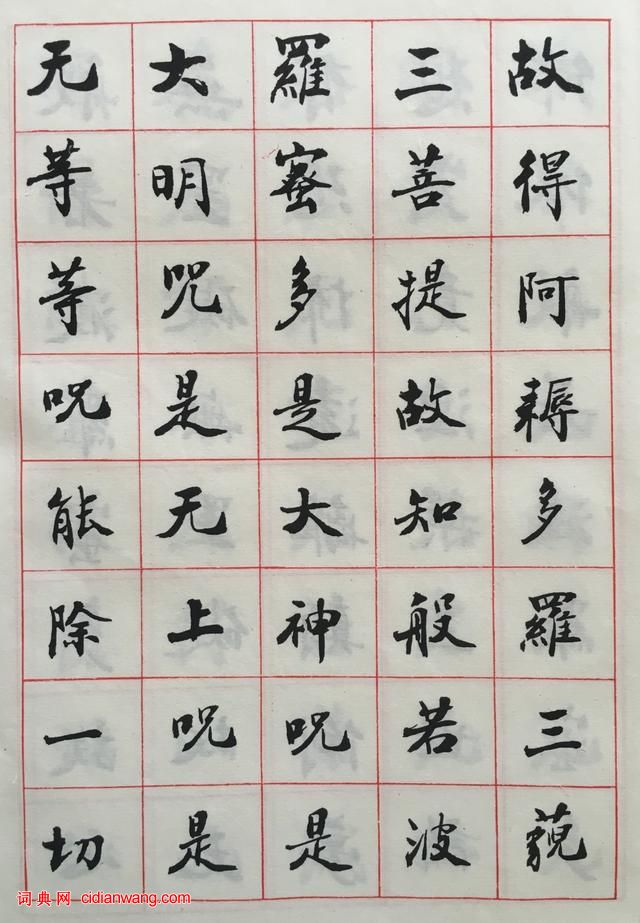 故得阿耨多羅三藐
三菩提故知般若波
羅蜜多是大神咒是
大明咒是无上咒是
无等等咒能除一切
词典网 cidianwang.com